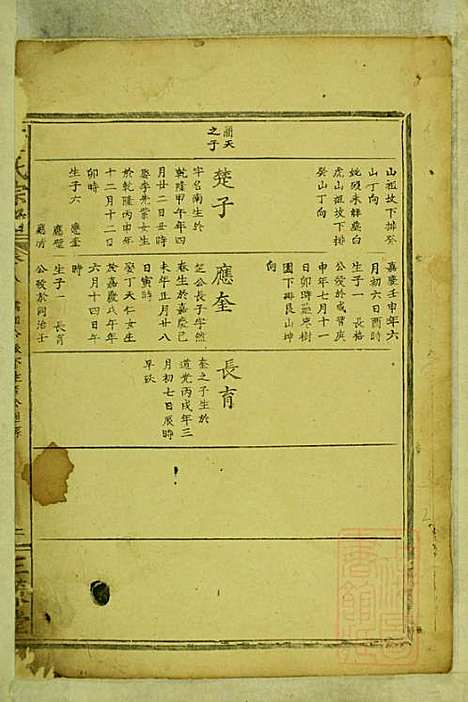 山祖坟下排癸
山丁向
姚殁未詳塟白
虎山祖坟下排
癸山丁向
蘭天
之子
楚子
字名南生於
乾隆甲午年四
月廿二日丑時
娶李先蒙女生
於乾隆丙申年
十二月十二日
卯時
生子六 應奎
應璧
嘉慶壬申年六
月初六日酉時
生子一 長格
公殁於咸豐庚
申年七月十一
日卯時塟東樹
園下排艮山坤
向
應奎
芝公長子字然
春生於嘉慶己
未年正月廿八
日寅時
娶丁天仁女生
於嘉慶戊午年
六月十四日午
時
生子一 長育
公殁於同治壬
長育
奎之子生於
道光丙戌年三
月初七日辰時
早殀
氏宗
卷八
三